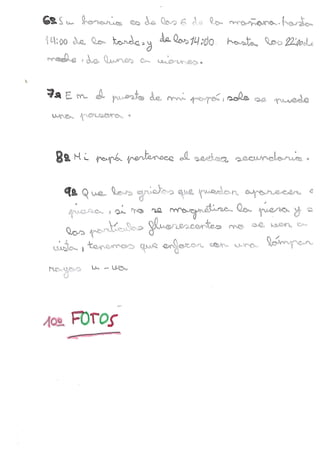 6º Su horario es de las 6 de la mañana hasta
14:00 de la tarde, y de las 14:00 hasta las 22:00 de
noche, de lunes a viernes.
7º En el puesto de mi papá, solo se puede
una persona.
8º Mi papá pertenece al sector secundario.
9º Que las grietas que puedan aparecer e
pieza, si no se magnetiza la pieza y e
las partículas fluorescentes no se ven a
vista, tenemos que enfocar con una lámpar
rayos u-va
10º FOTOS